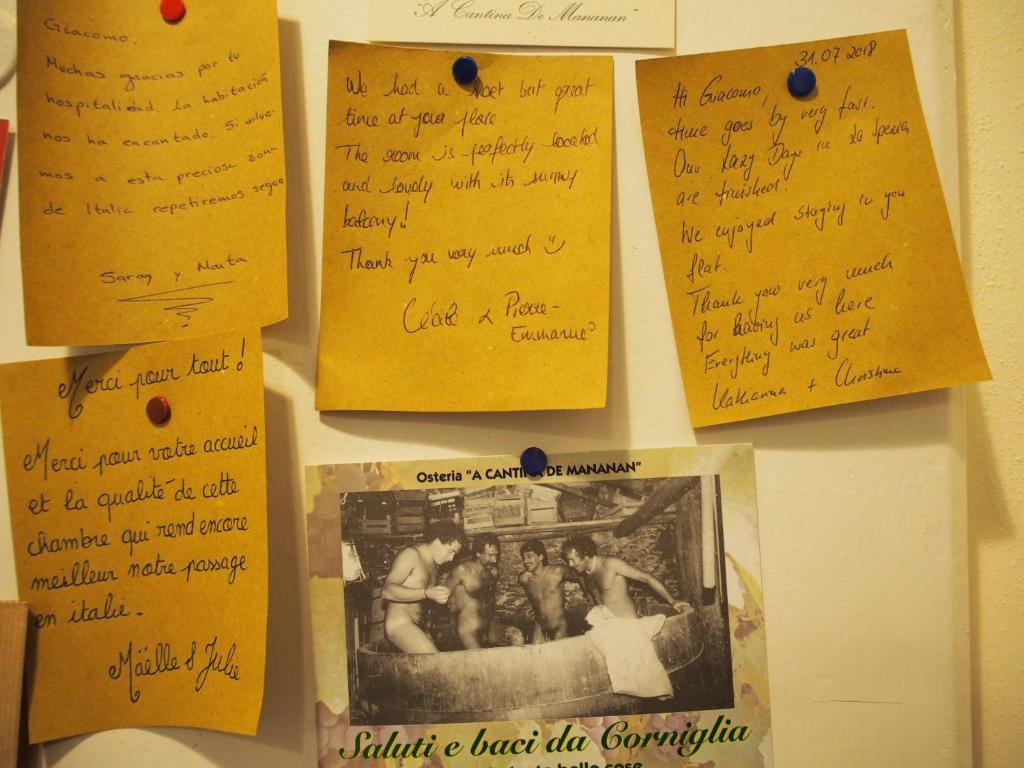 "A Cantina De Mananan"
Giacomo.
Muchas gracias por tu
hospitalidad. La habitación
nos ha encantado. Si volve-
mos a esta preciosa zona
de Italia repetiremos seguro
Saray y Marta
We had a short but great
time at your place
The room is perfectly located
and lovely with its sunny
balcony!
Thank you very much
Cécile & Pierre-
Emmanuel
31.07 2018
Hi Giacomo,
time goes by very fast.
Our Lazy Days in La Spezia
are finished.
We enjoyed staying in you
flat.
Thank you very much
for having us here
Everything was great
Katharina + Christina
Merci pour tout!
Merci pour votre accueil
et la qualité de cette
chambre qui rend encore
meilleur notre passage
en italie.
Maëlle & Julie
Osteria "A CANTINA DE MANANAN"
Saluti e baci da Corniglia
belle cose